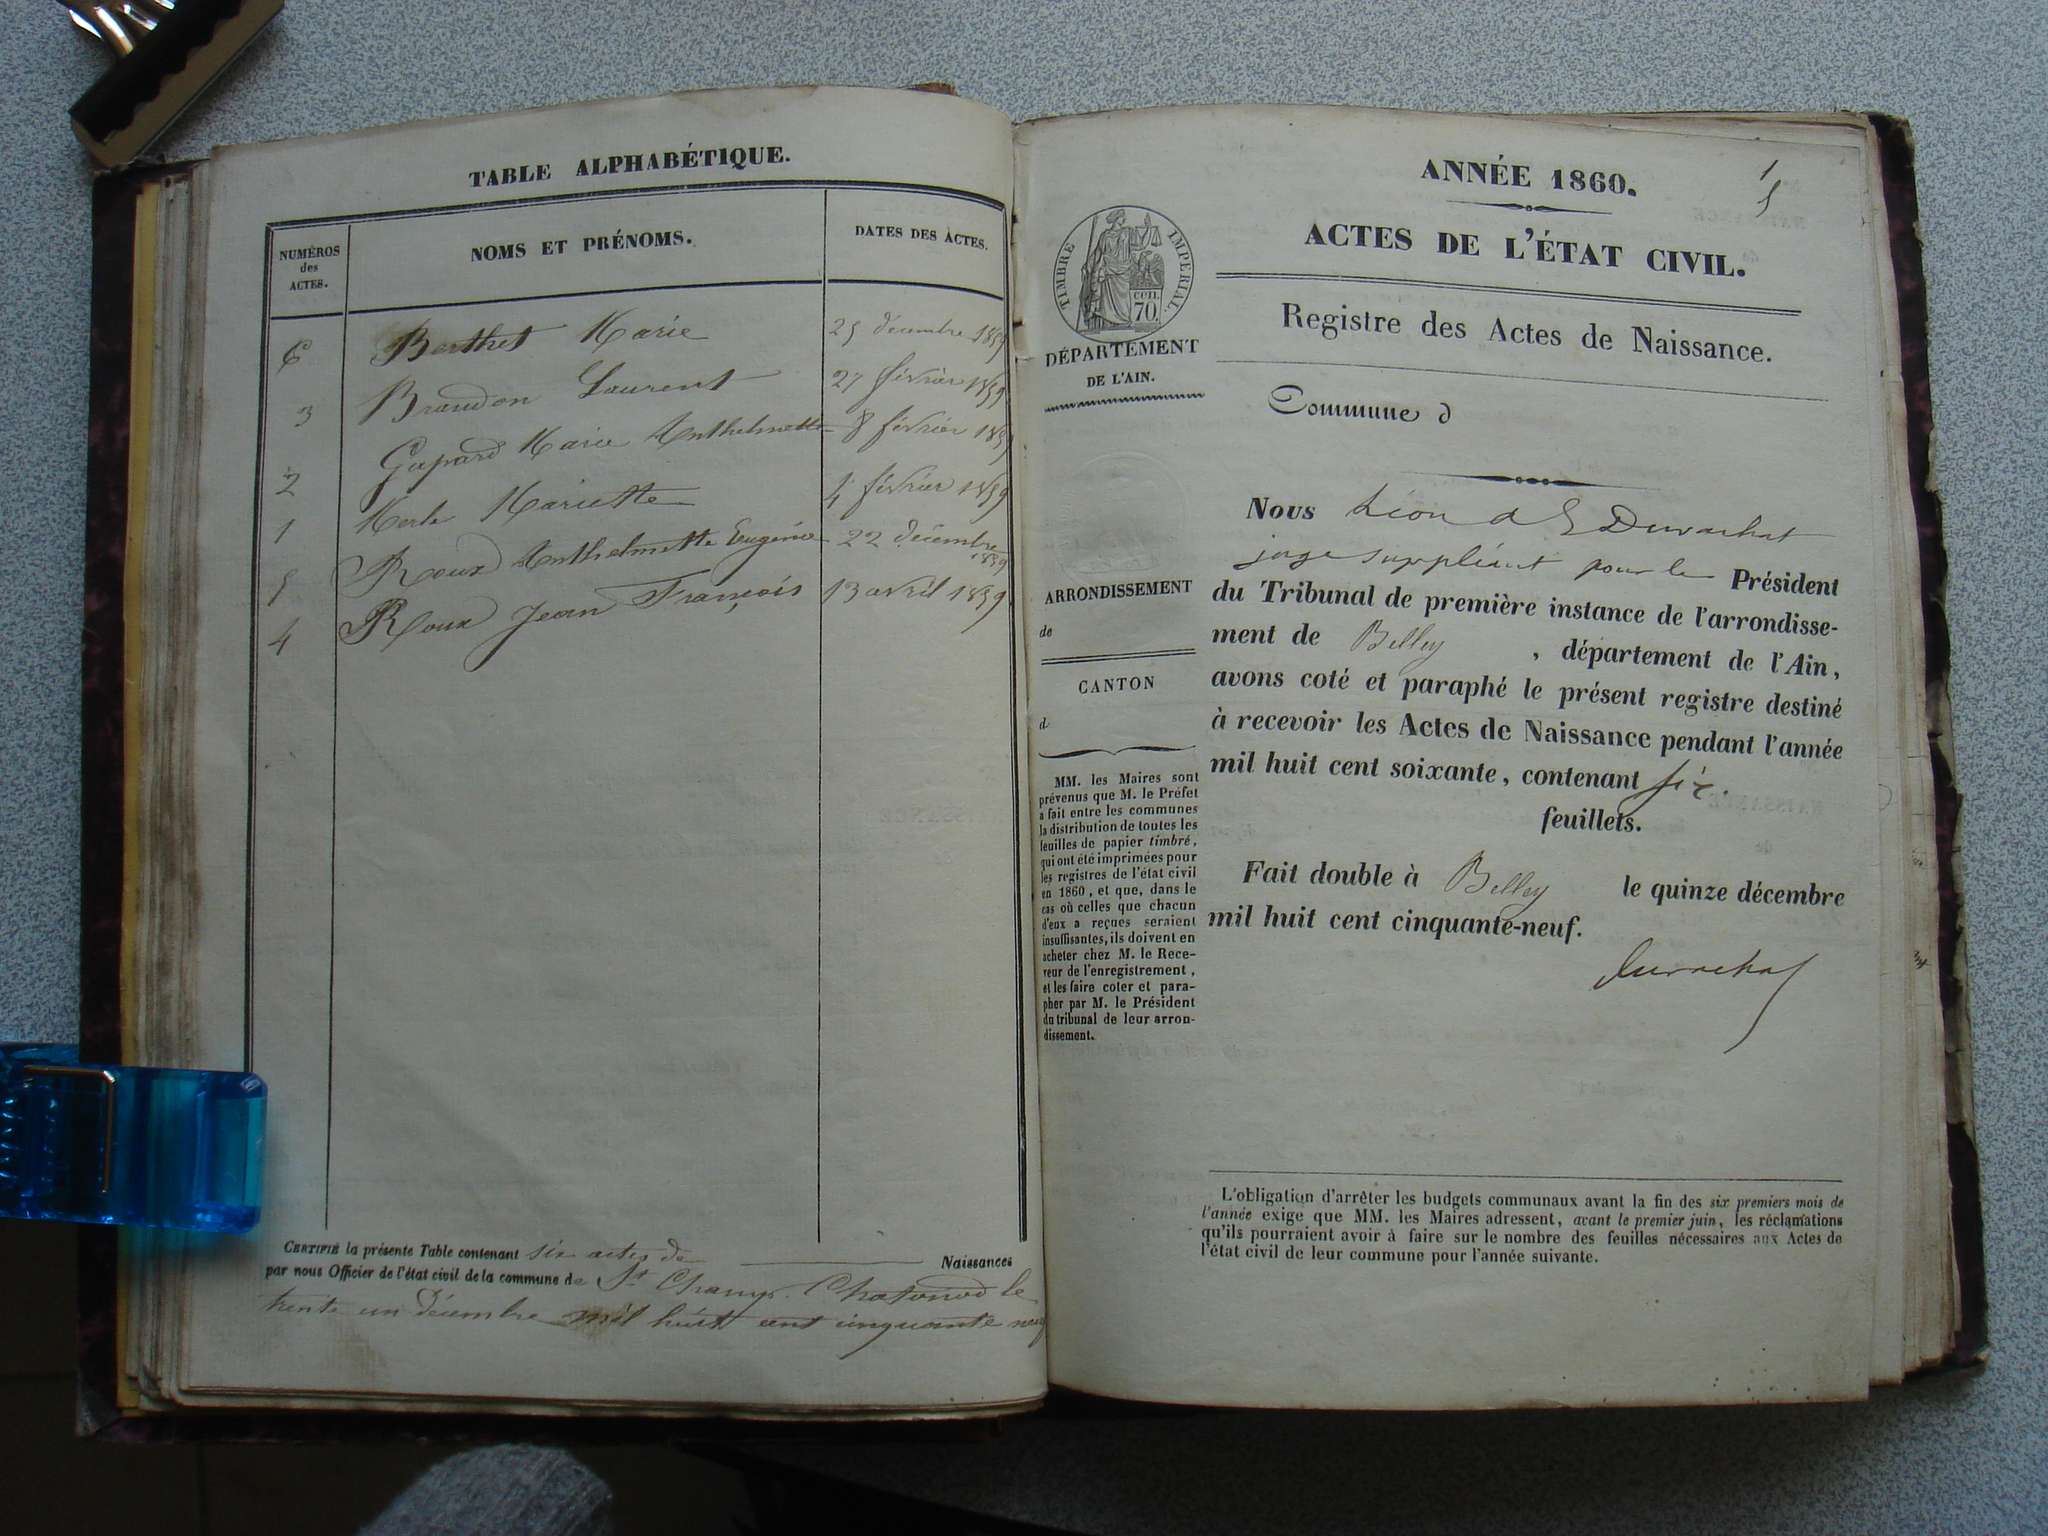 TABLE ALPHABÉTIQUE.
NUMÉROS
des
ACTES.
NOMS ET PRÉNOMS.
DATES DES ACTES.
6 Berthet Marie 25 décembre 1859
3 Brandon Laurent 27 février 1859
2 Gapard Marie Anthelmette 8 février 1859
1 Merle Mariette 4 février 1859
5 Roux Anthelmette Eugénie 22 décembre 1859
4 Roux Jean François 13 avril 1859
CERTIFIÉ la présente Table contenant six actes de Naissances
par nous Officier de l'état civil de la commune de St Champ-Chatonod le
trente un décembre mil huit cent cinquante neuf
1
5
ANNÉE 1860.
ACTES DE L'ÉTAT CIVIL.
Registre des Actes de Naissance.
TIMBRE IMPERIAL.
CEN.
70.
DÉPARTEMENT
DE L'AIN.
ARRONDISSEMENT
de
CANTON
d
MM. les Maires sont
prévenus que M. le Préfet
a fait entre les communes
la distribution de toutes les
feuilles de papier timbré,
qui ont été imprimées pour
les registres de l'état civil
en 1860, et que, dans le
cas où celles que chacun
d'eux a reçues seraient
insuffisantes, ils doivent en
acheter chez M. le Rece-
veur de l'enregistrement,
et les faire coter et para-
pher par M. le Président
du tribunal de leur arron-
dissement.
Commune d
Nous Léon Durachat
juge suppléant pour le Président
du Tribunal de première instance de l'arrondisse-
ment de Belley, département de l'Ain,
avons coté et paraphé le présent registre destiné
à recevoir les Actes de Naissance pendant l'année
mil huit cent soixante, contenant six.
feuillets.
Fait double à Belley le quinze décembre
mil huit cent cinquante-neuf.
Durachat
L'obligation d'arrêter les budgets communaux avant la fin des six premiers mois de
l'année exige que MM. les Maires adressent, avant le premier juin, les réclamations
qu'ils pourraient avoir à faire sur le nombre des feuilles nécessaires aux Actes de
l'état civil de leur commune pour l'année suivante.